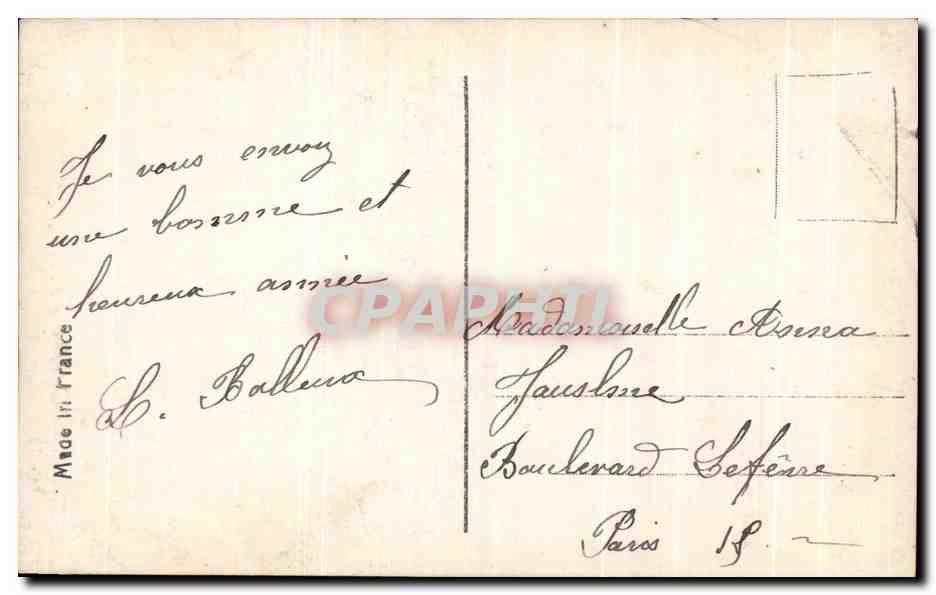 Je vous envoy
une bonne et
heureux année
L. Balleux
Made in France
CPAPHIL
Mademoiselle Anna
Boulevard Lefêvre
Paris 15